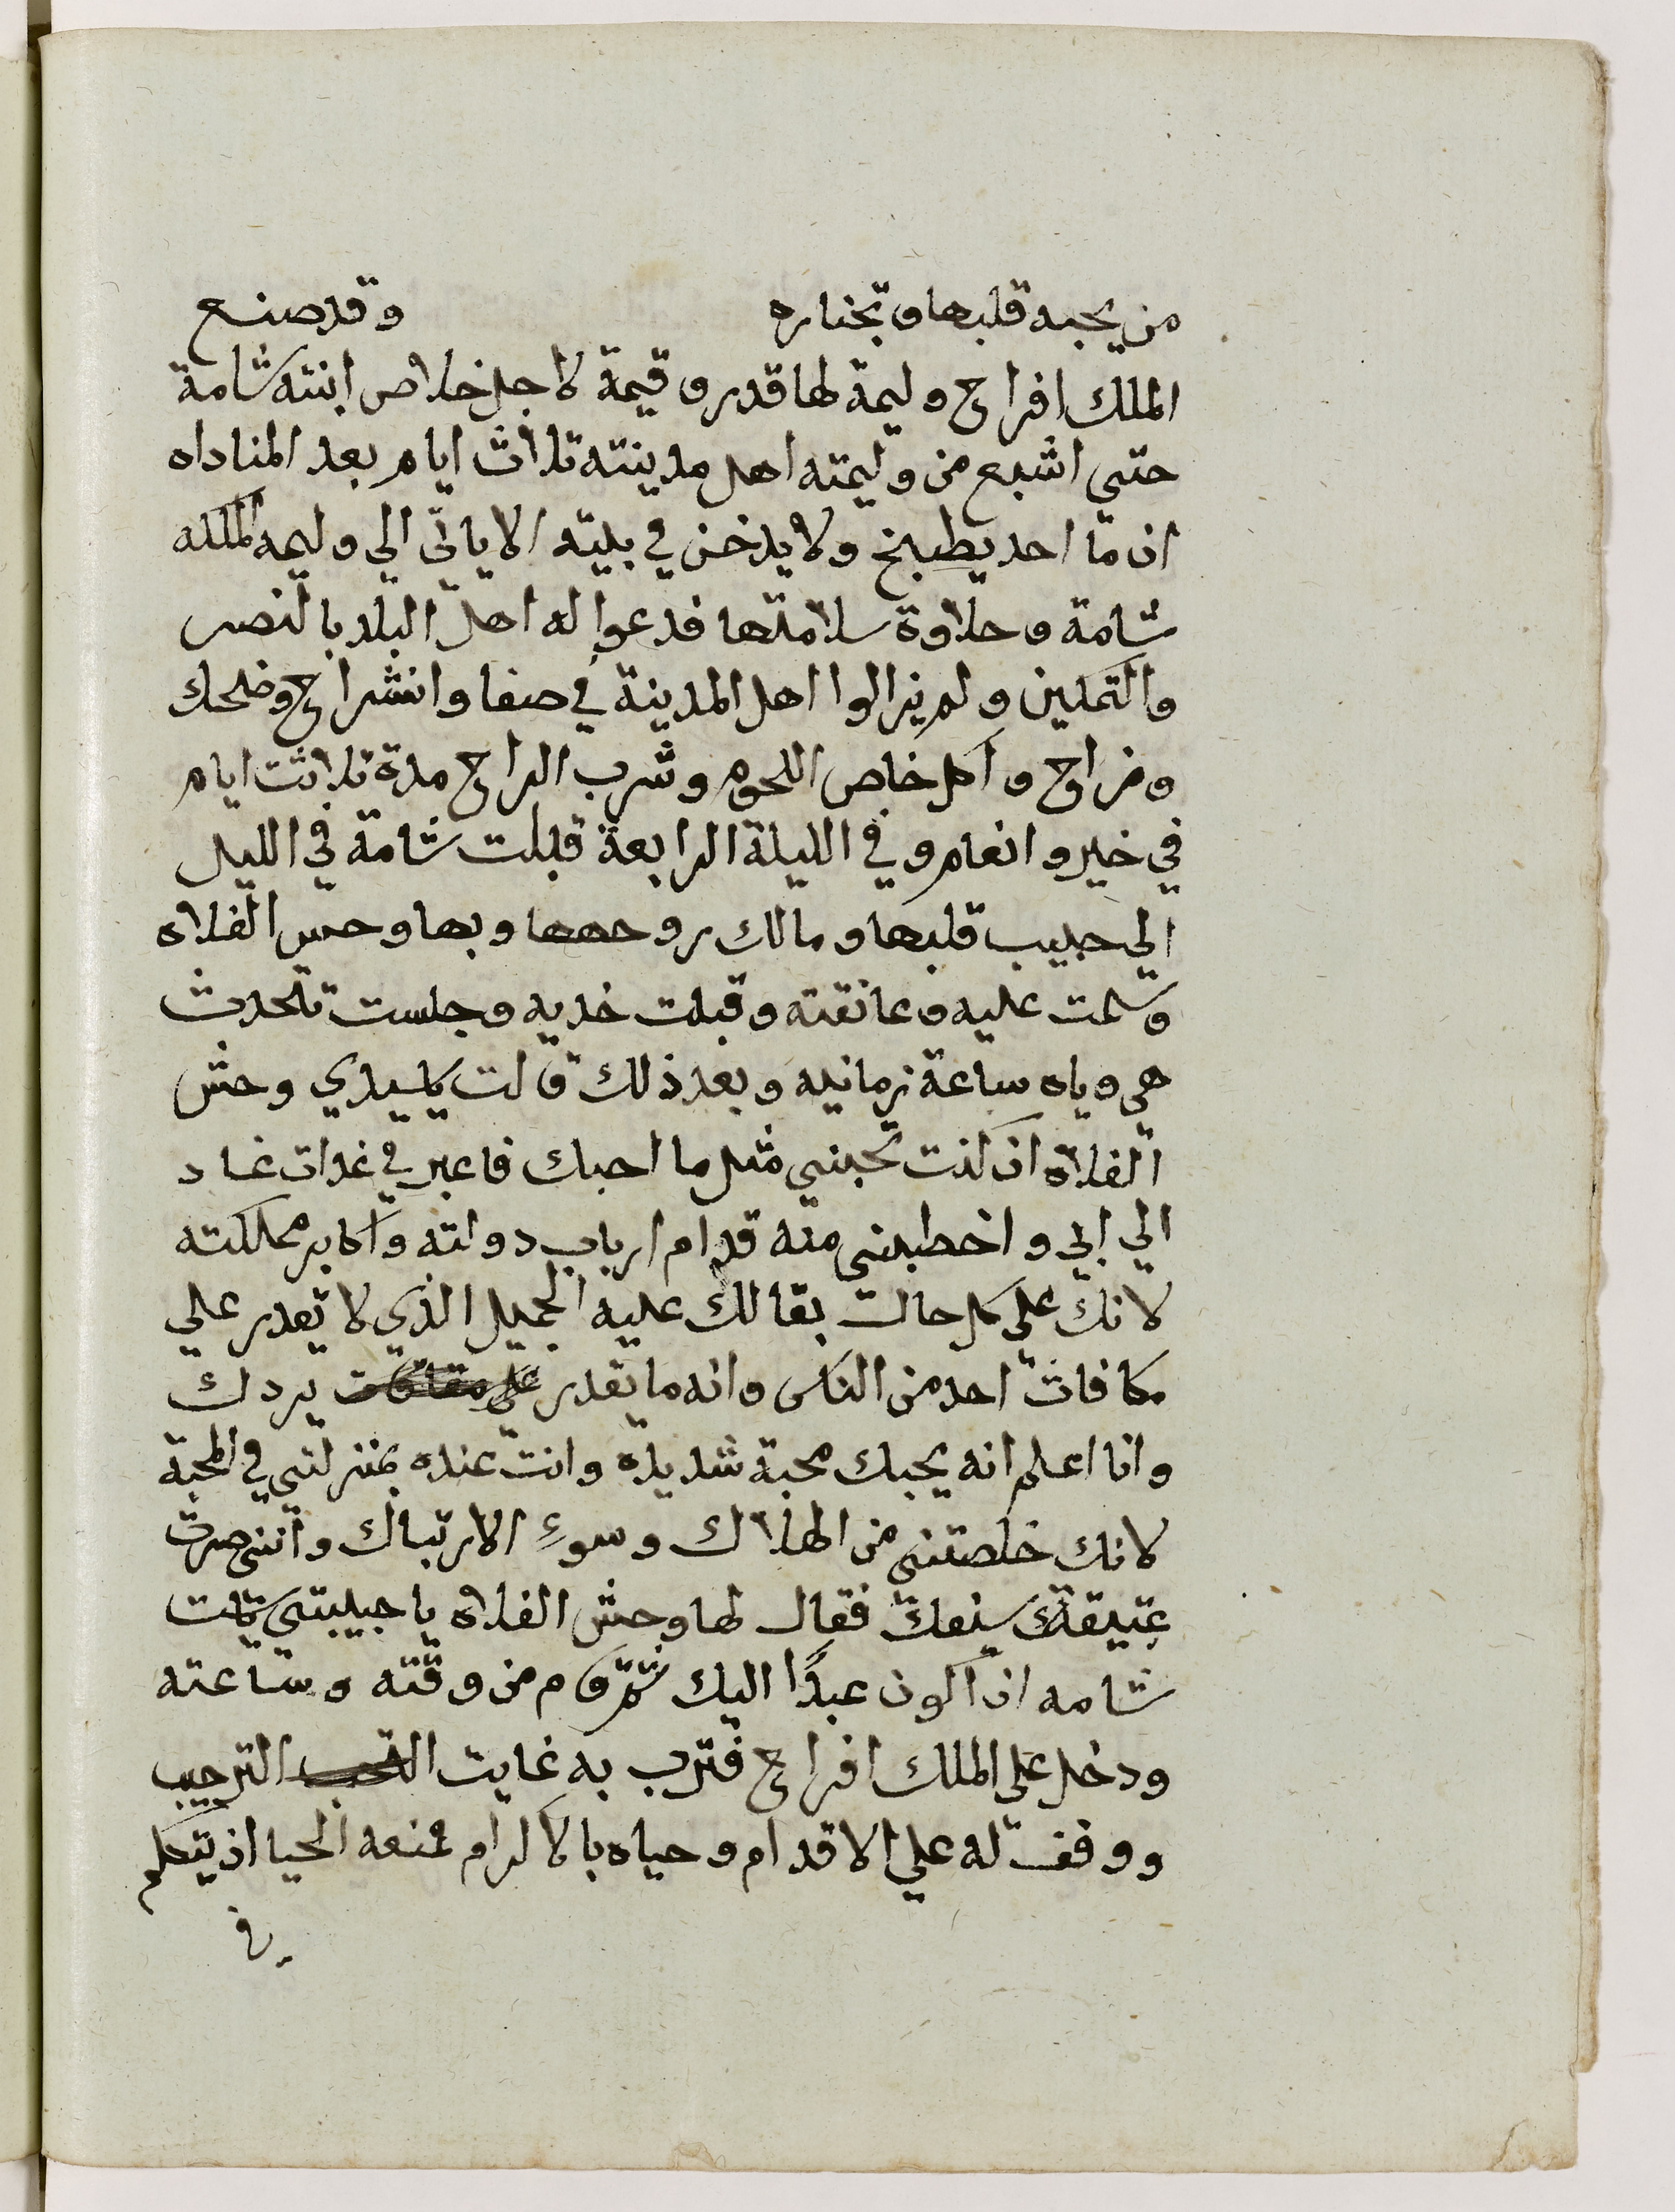 من يحبه قلبها وتختاره وقد صنع
الملك افراح وليمة لها قدر وقيمة لاجل خلاص ابنته شامة
حتي اشبع من وليمته اهل مدينته تلاث ايام بعد المناداه
ان ما احد يطبخ ولا يدخن في بيته الا ياتي الي وليمه الملكه
شامة وحلاوة سلامتها فدعوا له اهل البلد بالنصر
والتمكين ولم يزالوا اهل المدينة في صفا وانشراح وضحك
ومزاح واكل خاص اللحوم وشرب الراح مدة تلاتت ايام
في خير وانعام وفي الليلة الرابعة قبلت شامة في الليل
الي حبيب قلبها ومالك روحها وبها وحش الفلاه
وسلمت عليه وعانقته وقبلت خديه وجلست تتحدث
هي وياه ساعة زمانيه وبعد ذلك قالت يا سيدي وحش
الفلاه ان كنت تحبني مثل ما احبك فاعبر في غدات غاد
الي ابي واخطبني منه قدام ارباب دولته واكابر مملكته
لانك علي كل حالت بقا لك عليه الجميل الذي لا يقدر علي
مكافات احد من الناس وانه ما يقدر علي يردك
وانا اعلم انه يحبك محبة شديده وانت عنده بمنزلتي في المحبة
لانك خلصتني من الهلاك وسوء الارتباك وانني صرت
عتيقة سيفك فقال لها وحش الفلاه يا حبيبتي يا ست
شامه ان اكون عبدًا اليك ثم قام من وقته وساعته
ودخل علي الملك افراح فترب به غايت الترحيب
ووقف له علي الاقدام وحياه بالاكرام فمنعه الحيا ان يتكلم
في